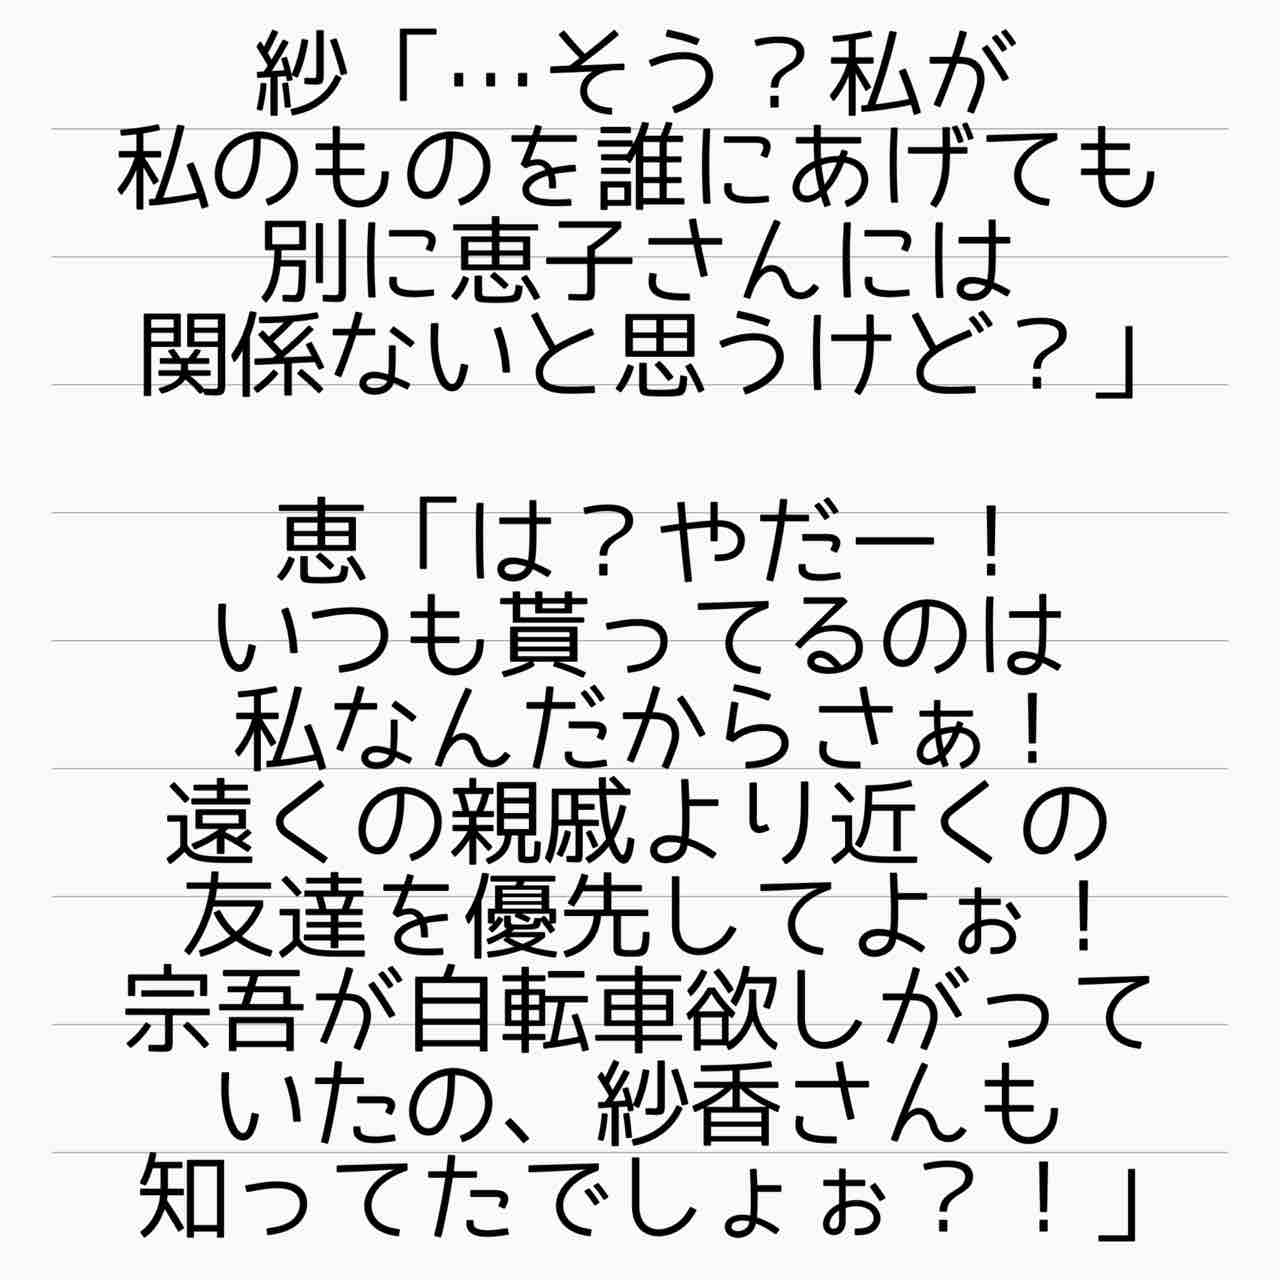 紗「…そう？私が
私のものを誰にあげても
別に恵子さんには
関係ないと思うけど？」
恵「は？やだー！
いつも貰ってるのは
私なんだからさぁ！
遠くの親戚より近くの
友達を優先してよぉ！
宗吾が自転車欲しがって
いたの、紗香さんも
知ってたでしょぉ？！」